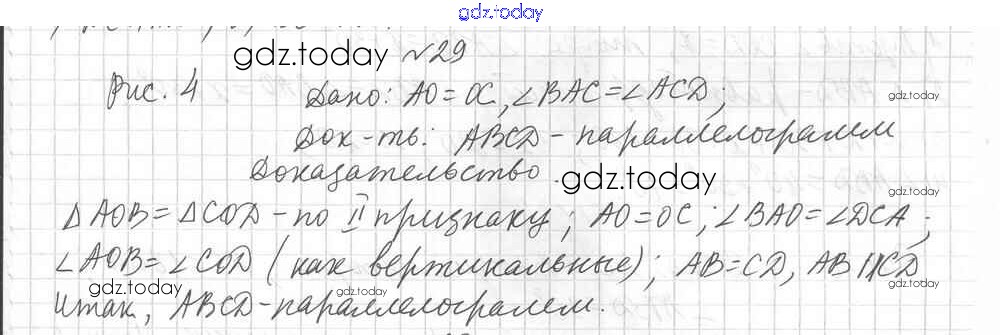 gdz.today
gdz.today №29
Рис. 4 Дано: AO = OC, ∠BAC = ∠ACD; gdz.today
Док-ть: ABCD - параллелограмм
Доказательство. gdz.today
△AOB = △COD - по II признаку; AO = OC; ∠BAO = ∠DCA;
∠AOB = ∠COD (как вертикальные); AB = CD, AB || CD
gdz.today gdz.today gdz.today
Итак, ABCD - параллелограмм.